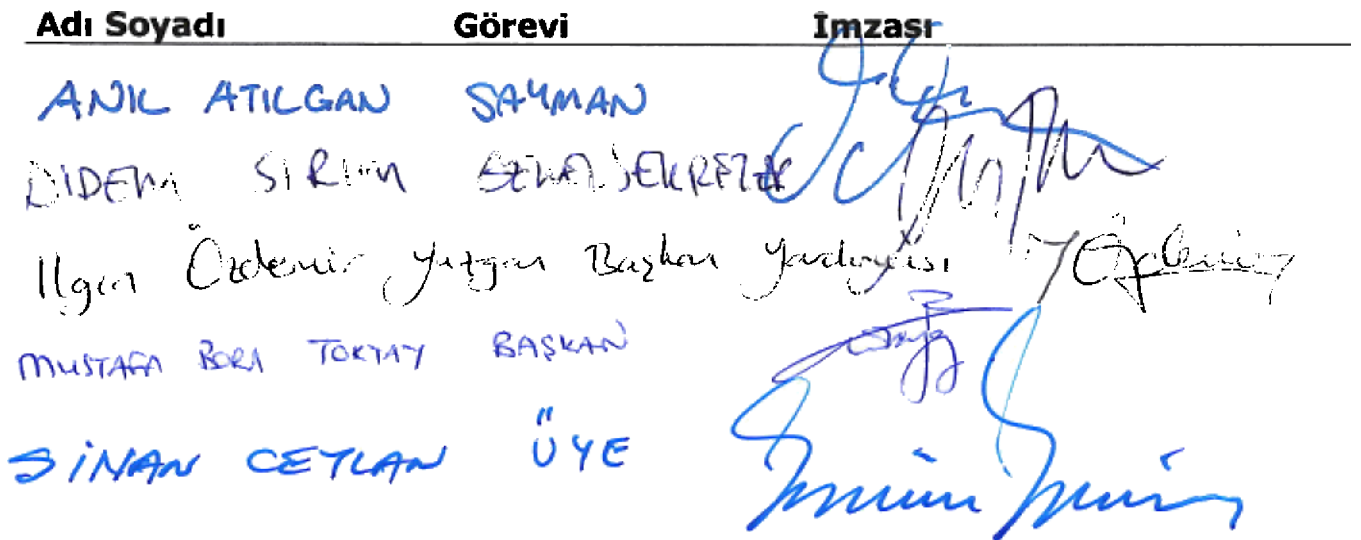 Adı Soyadı Görevi İmzası
ANIL ATILGAN SAYMAN
DİDEM SİRKİN GENEL SEKRETER
Ilgın Özdemir Yazgan Başkan Yardımcısı
MUSTAFA BORA TOKYAY BAŞKAN
SİNAN CEYLAN ÜYE